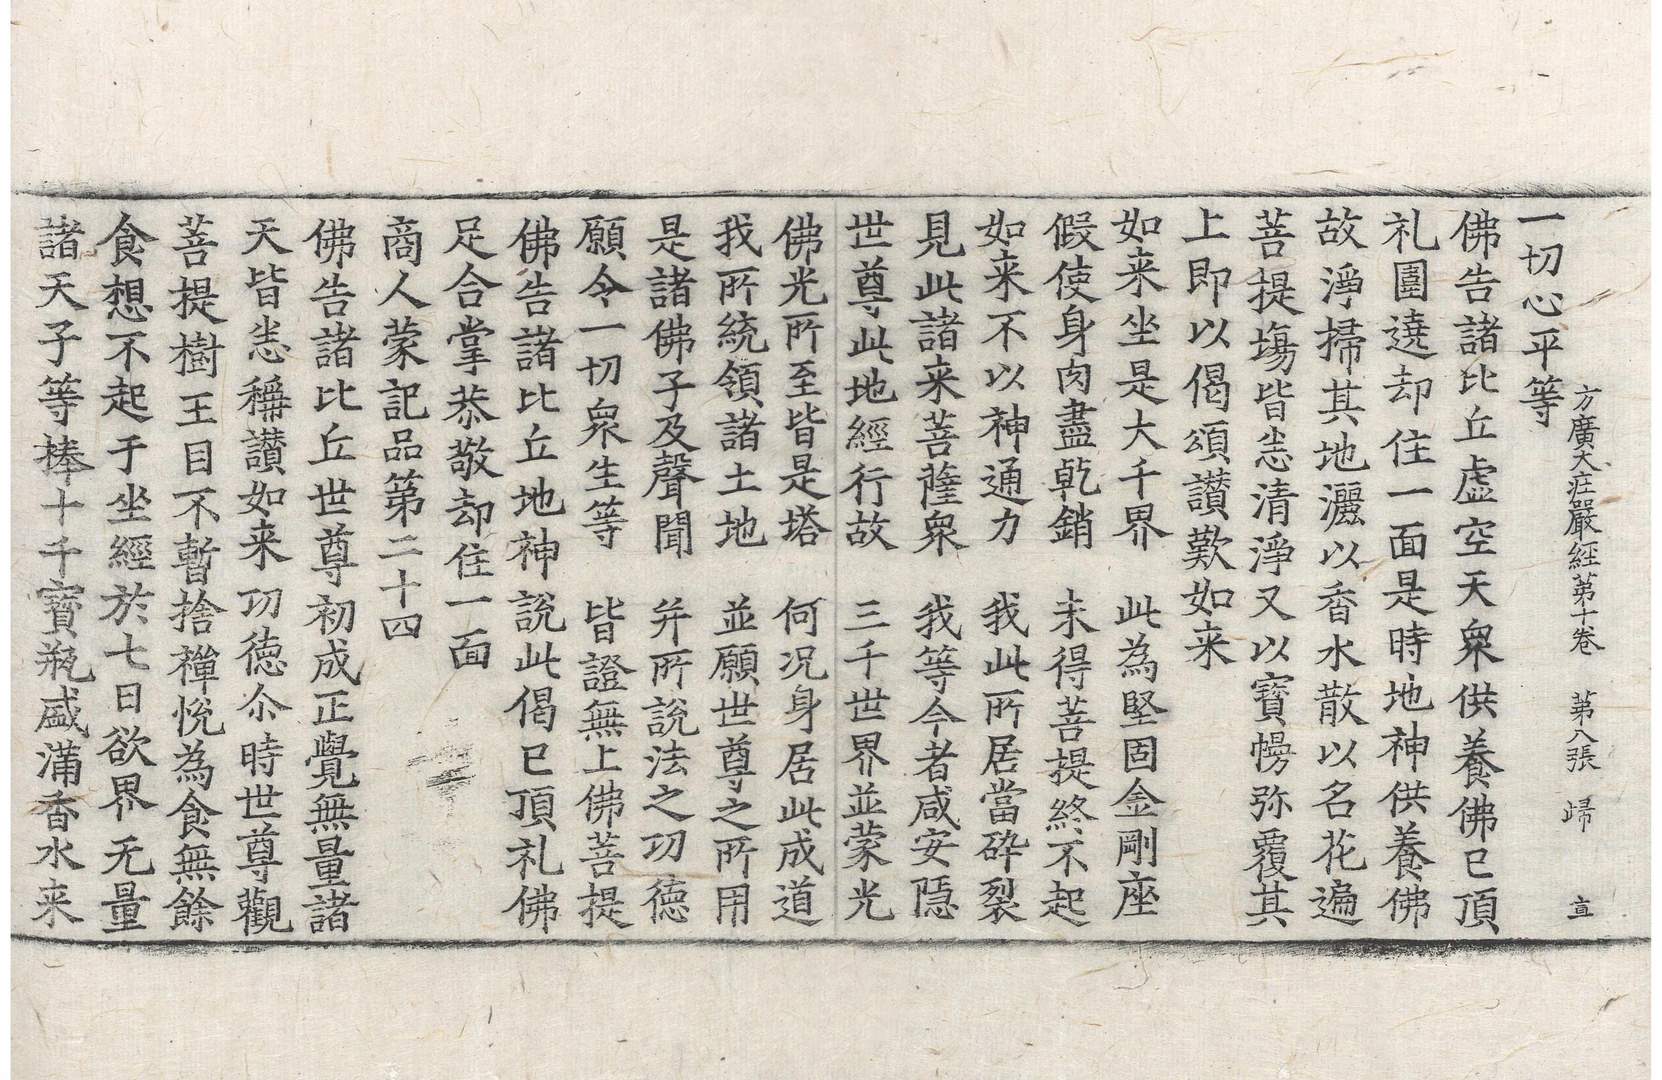 方廣大庄嚴經第十卷　第八張　歸　宣
一切心平等
佛告諸比丘虛空天衆供養佛已頂
礼圍遶却住一面是時地神供養佛
故淨掃其地灑以香水散以名花遍
菩提場皆悉清淨又以寶幔弥覆其
上即以偈頌讃歎如来
如来坐是大千界　此為堅固金剛座
假使身肉盡乾銷　未得菩提終不起
如来不以神通力　我此所居當碎裂
見此諸来菩薩衆　我等今者咸安隱
世尊此地經行故　三千世界並蒙光
佛光所至皆是塔　何况身居此成道
我所統領諸土地　並願世尊之所用
是諸佛子及聲聞　并所說法之功德
願令一切衆生等　皆證無上佛菩提
佛告諸比丘地神說此偈已頂礼佛
足合掌恭敬却住一面
商人蒙記品第二十四
佛告諸比丘世尊初成正覺無量諸
天皆悉稱讃如来功德尒時世尊觀
菩提樹王目不暫捨禪悅為食無餘
食想不起于坐經於七日欲界无量
諸天子等捧十千寶瓶盛滿香水来